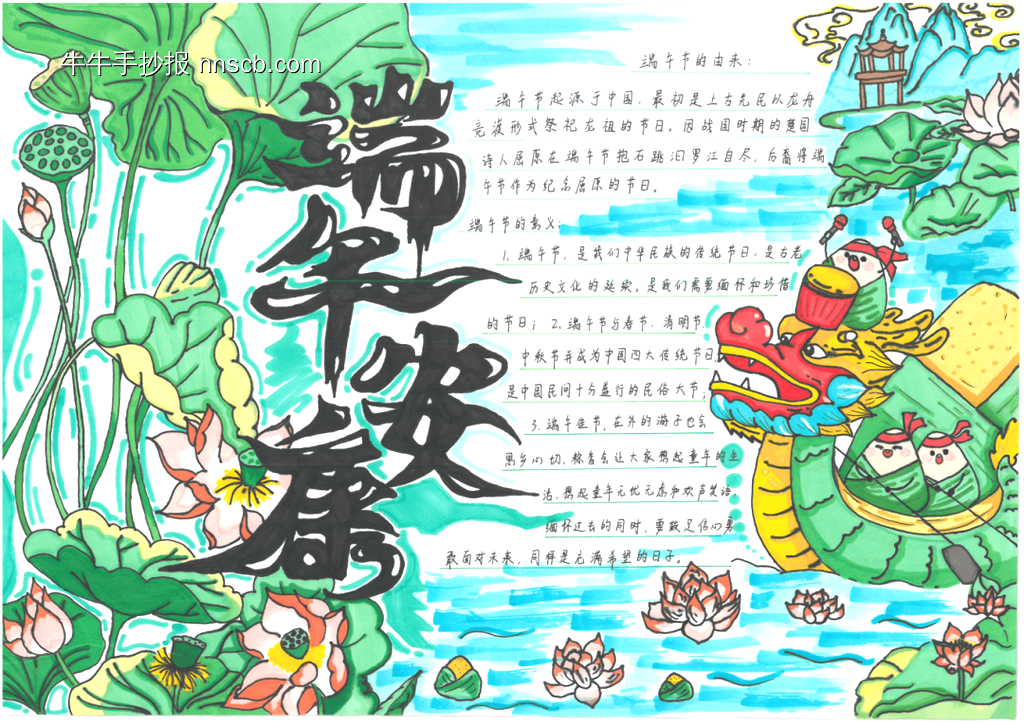 牛牛手抄报 nnscb.com
端午安康
端午节的由来：
端午节起源于中国，最初是上古先民以龙舟
竞渡形式祭祀龙祖的节日。因战国时期的楚国
诗人屈原在端午节抱石跳汨罗江自尽，后裔将端
午节作为纪念屈原的节日。
端午节的意义：
1. 端午节，是我们中华民族的传统节日，是古老
历史文化的延续，是我们需要缅怀和珍惜
的节日； 2. 端午节与春节、清明节、
中秋节并成为中国四大传统节日，
是中国民间十分盛行的民俗大节；
3. 端午佳节，在外的游子也会
思乡心切，粽香会让大家携起童年的生
活，携起童年无忧无虑和欢声笑语，
缅怀过去的同时，要鼓足信心勇
敢面对未来，同样是充满希望的日子。